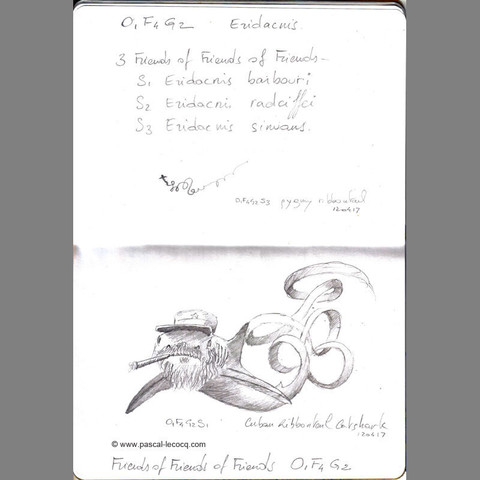 O₁F₄G₂ Eridacnis.
3 Friends of Friends of Friends -
S₁ Eridacnis barbouri
S₂ Eridacnis radcliffei
S₃ Eridacnis sinuans.
O₁F₄G₂S₃ pygmy ribbontail
12 août 17
O₁F₄G₂S₁ Cuban ribbontail Catshark
12 août 17
© www.pascal-lecocq.com
Friends of Friends of Friends O₁F₄G₂